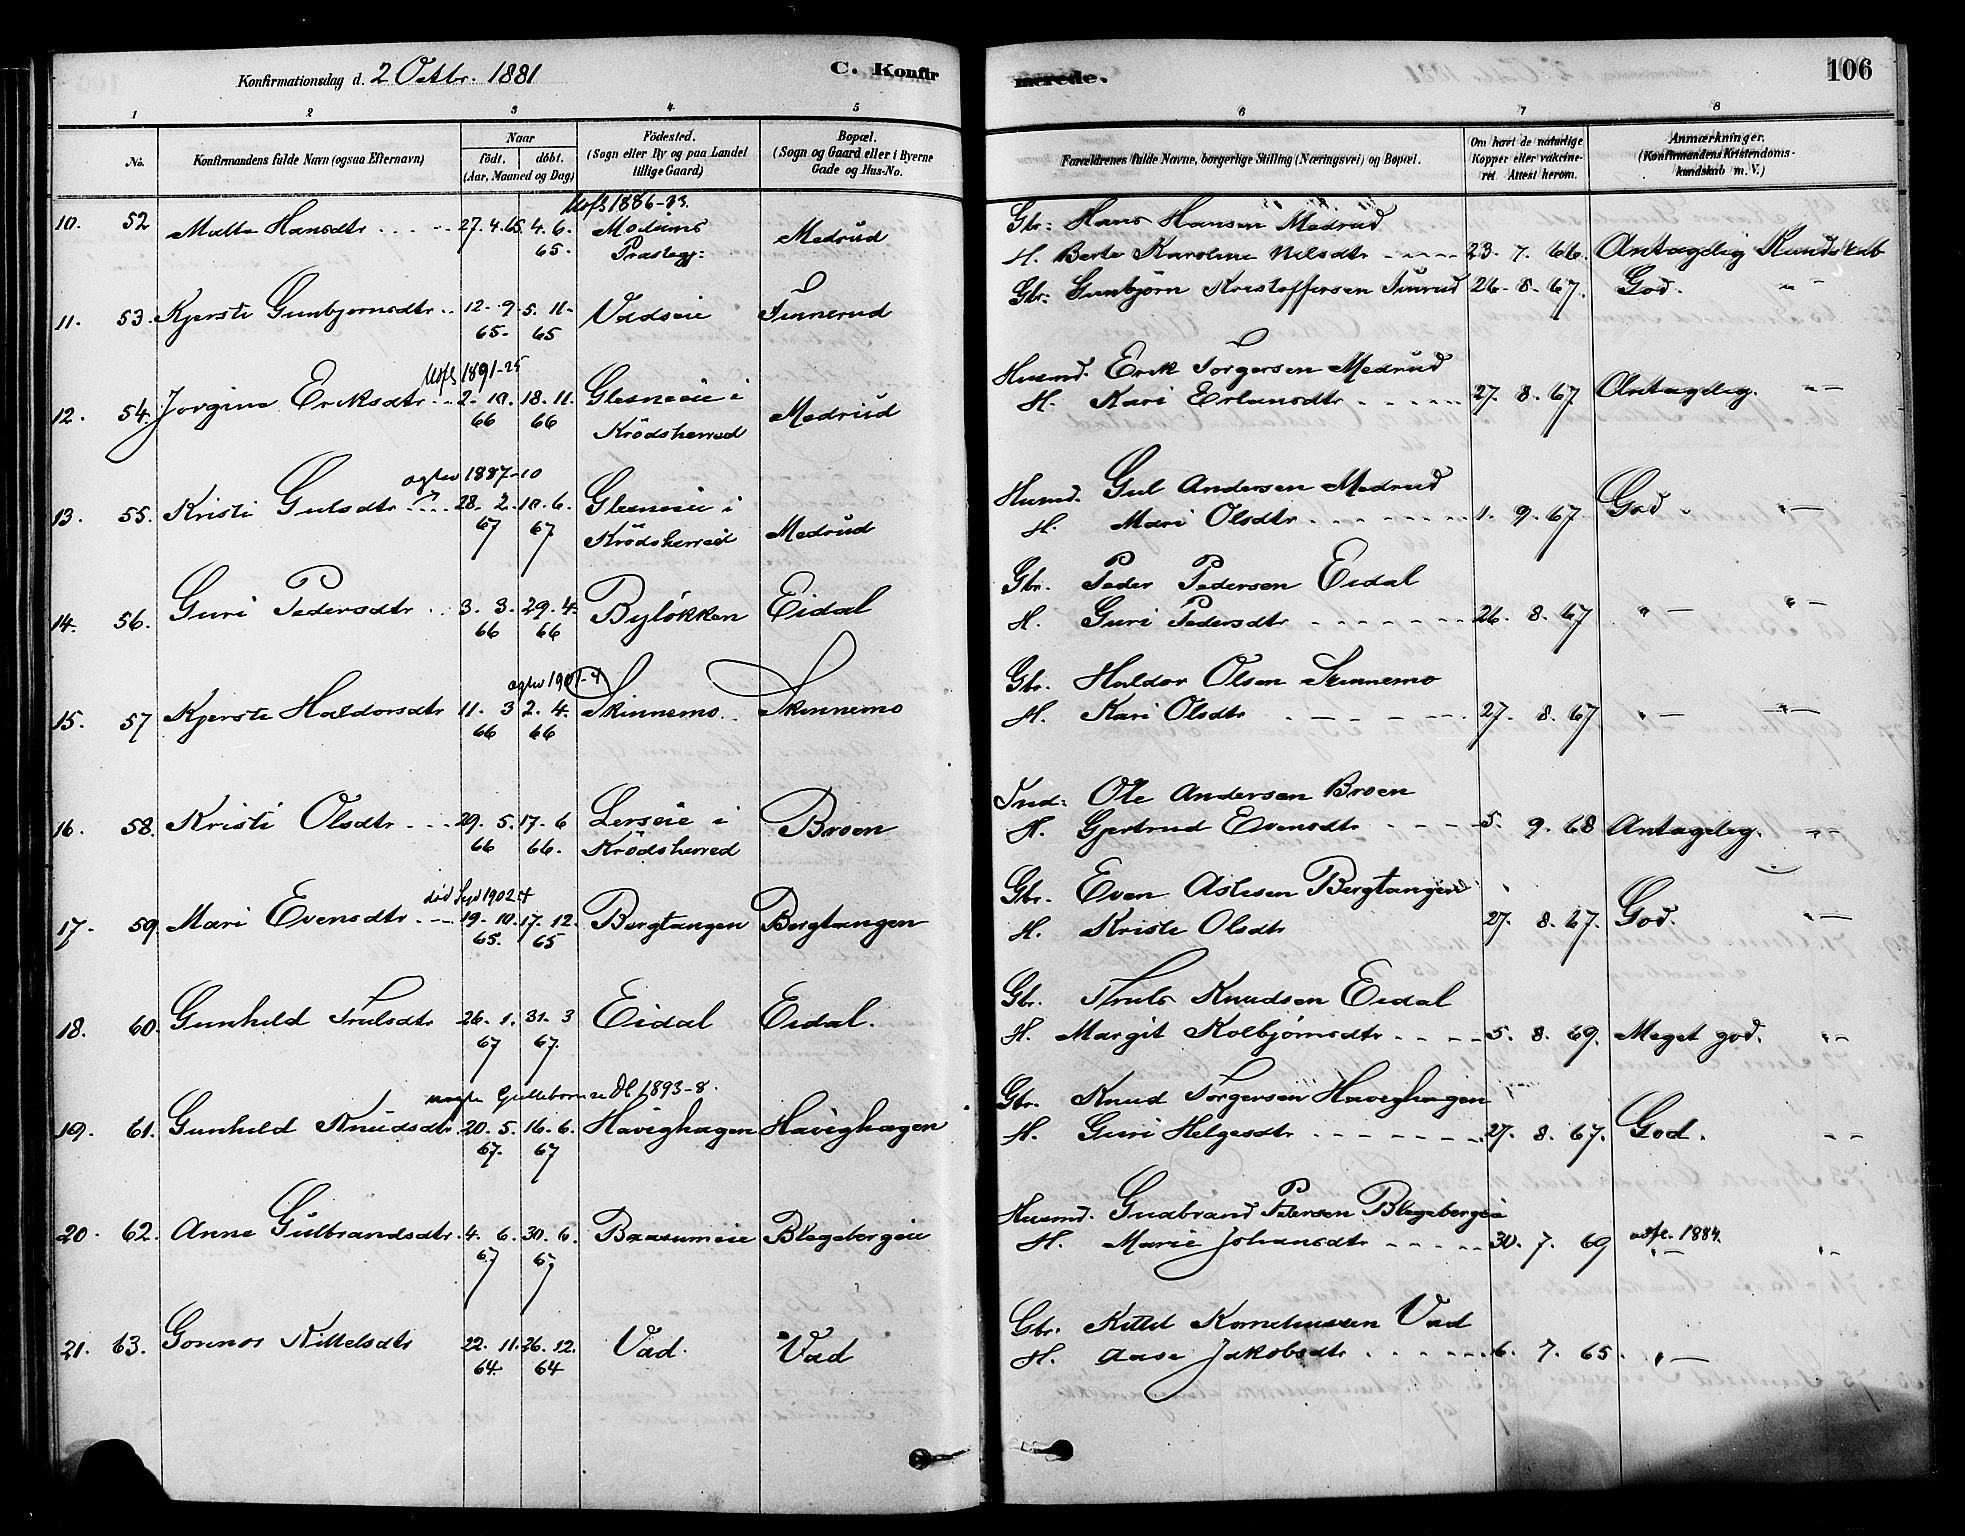 Konfirmationsdag d. 2 Octbr. 1881
C. Konfir
merede.
106
1 2 3 4 5 6 7 8
No.
Konfirmandens fulde Navn (ogsaa Efternavn)
Naar
födt. döbt.
(Aar, Maaned og Dag)
Födested.
(Sogn eller By og paa Landet
tillige Gaard)
Bopæl.
(Sogn og Gaard eller i Byerne
Gade og Hus-No.
Forældrenes fulde Navne, borgerlige Stilling (Næringsvei) og Bopæl.
Om havt de naturlige
Kopper eller vakcine-
ret Attest herom.
Anmærkninger.
(Konfirmandens Kristendoms-
kundskab m. V.)
Utfl 1886-23.
10. 52 Malte Hansdtr 27. 4. 65 4. 6. 65. Modums Præstegj: Medrud
Gbr: Hans Hansen Medrud
H. Berte Karoline Nilsdtr 23. 7. 66. Antagelig Kundskab
11. 53. Kjersti Gunbjornsdtr 12. 9 65. 5. 11. 65 Vadseie Tinnerud
Gbr: Gunbjörn Kristoffersen Tinrud 26. 8. 67. God. " -
Utfl 1891-25
12. 54. Jorgine Eriksdtr 2. 10. 66 18. 11. 66 Glesneeie i Krödsherred Medrud
Husmd. Erik Torgersen Medrud
H. Kari Erlansdtr 27. 8. 67 Antagelig. " -
agtev 1887-10
13. 55. Kristi Gulsdtr 28. 2. 67 10. 6. 67 Glesneeie i Krödsherred Medrud
Husmd. Gul Andersen Medrud
H. Mari Olsdtr 1. 9. 67. God " -
14. 56. Guri Pedersdtr 3. 3. 66 29. 4. 66 Bylökken Eidal
Gbr. Peder Pedersen Eidal
H. Guri Pedersdtr 26. 8. 67 " - " -
agtev 1901-4
15. 57 Kjersti Haldorsdtr 11. 3 66 2. 4. 66 Skinnemo Skinnemo
Gbr. Haldor Olsen Skinnemo
H. Kari Olsdtr 27. 8. 67 " - " -
16. 58. Kristi Olsdtr 29. 5. 66 17. 6 66. Lerseie i Krödsherred Broen
Ind: Ole Andersen Broen
H. Gjertrud Evensdtr 5. 9. 68 Antagelig. " -
död 1902
17. 59. Mari Evensdtr 19. 10. 65. 17. 12. 65 Bergtangen Bergtangen
Gbr. Even Aslesen Bergtangen
H. Kristi Olsdtr 27. 8. 67. God. " -
18. 60. Gunhild Trulsdtr 26. 1. 67 31. 3 67. Eidal Eidal.
Gbr. Truls Knudsen Eidal
H. Margit Kolbjörnsdtr 5. 8. 69. Meget god. " -
1893-8.
19. 61. Gunhild Knudsdtr 20. 5. 67. 16. 6. 67 Havighagen Havighagen
Gbr. Knud Torgersen Havighagen
H. Guri Helgesdtr 27. 8. 67. God. - -
20. 62. Anne Gulbrandsdtr. 4. 6. 67 30. 6. 67 Braasumeie Blegebergeie
Husmd. Gudbrand Petersen Blegebergeie
H. Marie Johansdtr 30. 7. 69 utfl. 1884. " - " -
21. 63. Gonnor Kittelsdtr 22. 11. 64. 26. 12. 64 Vad. Vad
Gbr. Kittel Korneliussen Vad
H. Aase Jakobsdtr 6. 7. 65. " -